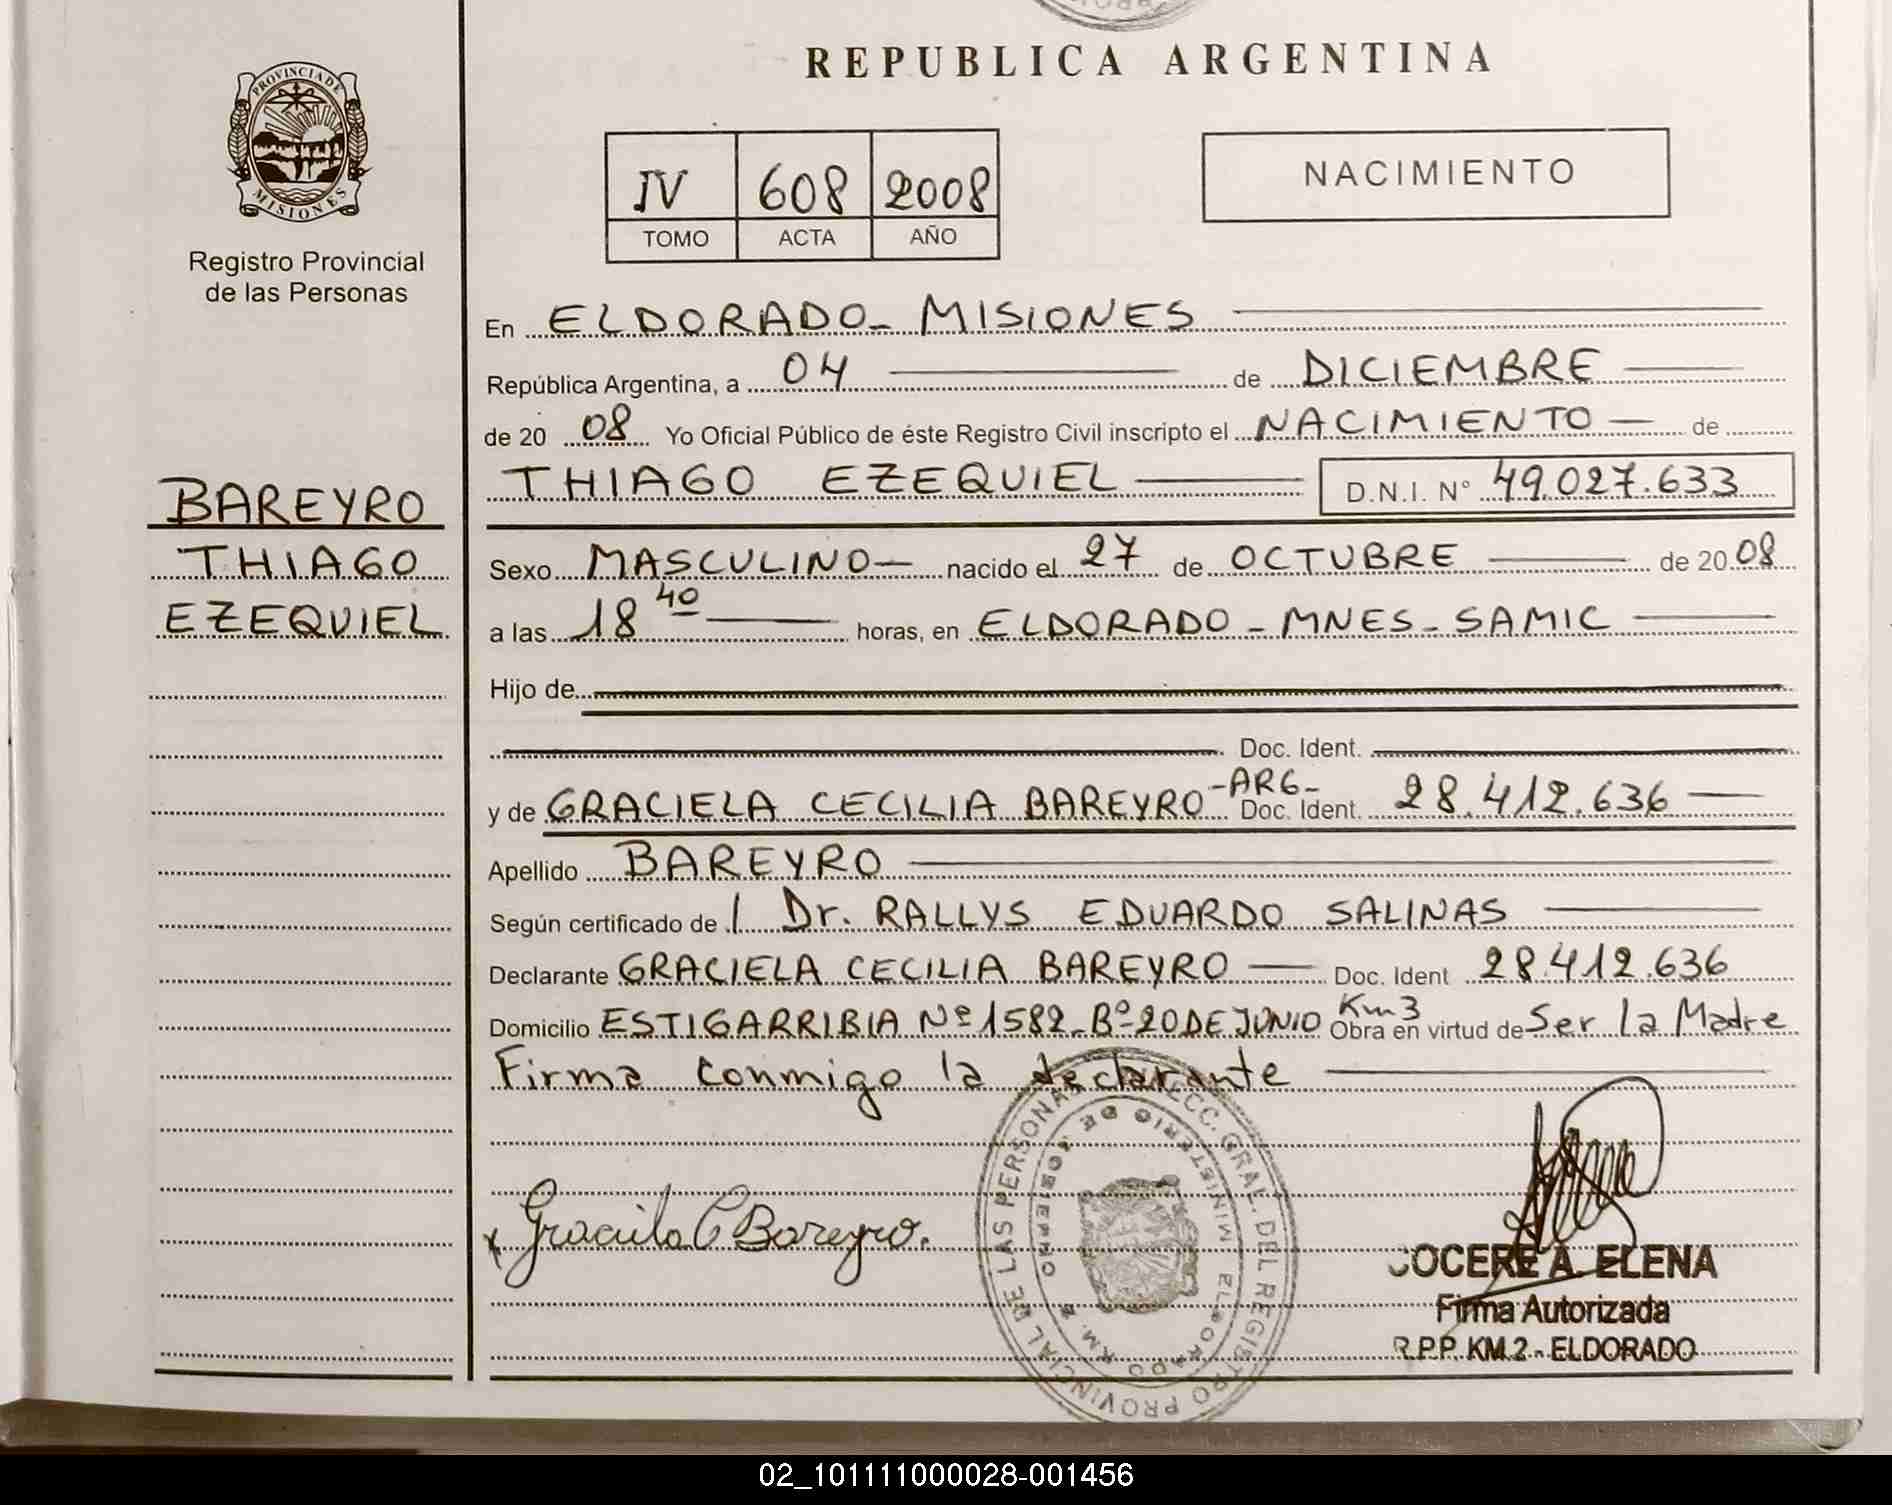 REPUBLICA ARGENTINA
PROVINCIA DE
MISIONES
Registro Provincial
de las Personas
IV 608 2008
TOMO ACTA AÑO
NACIMIENTO
En ELDORADO - MISIONES
República Argentina, a 04 de DICIEMBRE
de 20 08 Yo Oficial Público de éste Registro Civil inscripto el NACIMIENTO de
THIAGO EZEQUIEL D.N.I. N° 49.027.633
BAREYRO
THIAGO
EZEQUIEL
Sexo MASCULINO nacido el 27 de OCTUBRE de 20 08
a las 18 40 horas, en ELDORADO - MNES - SAMIC
Hijo de
Doc. Ident.
y de GRACIELA CECILIA BAREYRO - ARG - Doc. Ident. 28.412.636
Apellido BAREYRO
Según certificado de Dr. RALLYS EDUARDO SALINAS
Declarante GRACIELA CECILIA BAREYRO Doc. Ident 28.412.636
Domicilio ESTIGARRIBIA Nº 1582 - Bº 20 DE JUNIO Km 3 Obra en virtud de Ser la Madre
Firma conmigo la declarante
x Graciela C Bareyro.
DIRECC. GRAL. DEL REGISTRO PROVINCIAL DE LAS PERSONAS
MINISTERIO DE GOBIERNO
ELDORADO KM. 2
COCERE A. ELENA
Firma Autorizada
R.P.P. KM.2 - ELDORADO
02_101111000028-001456